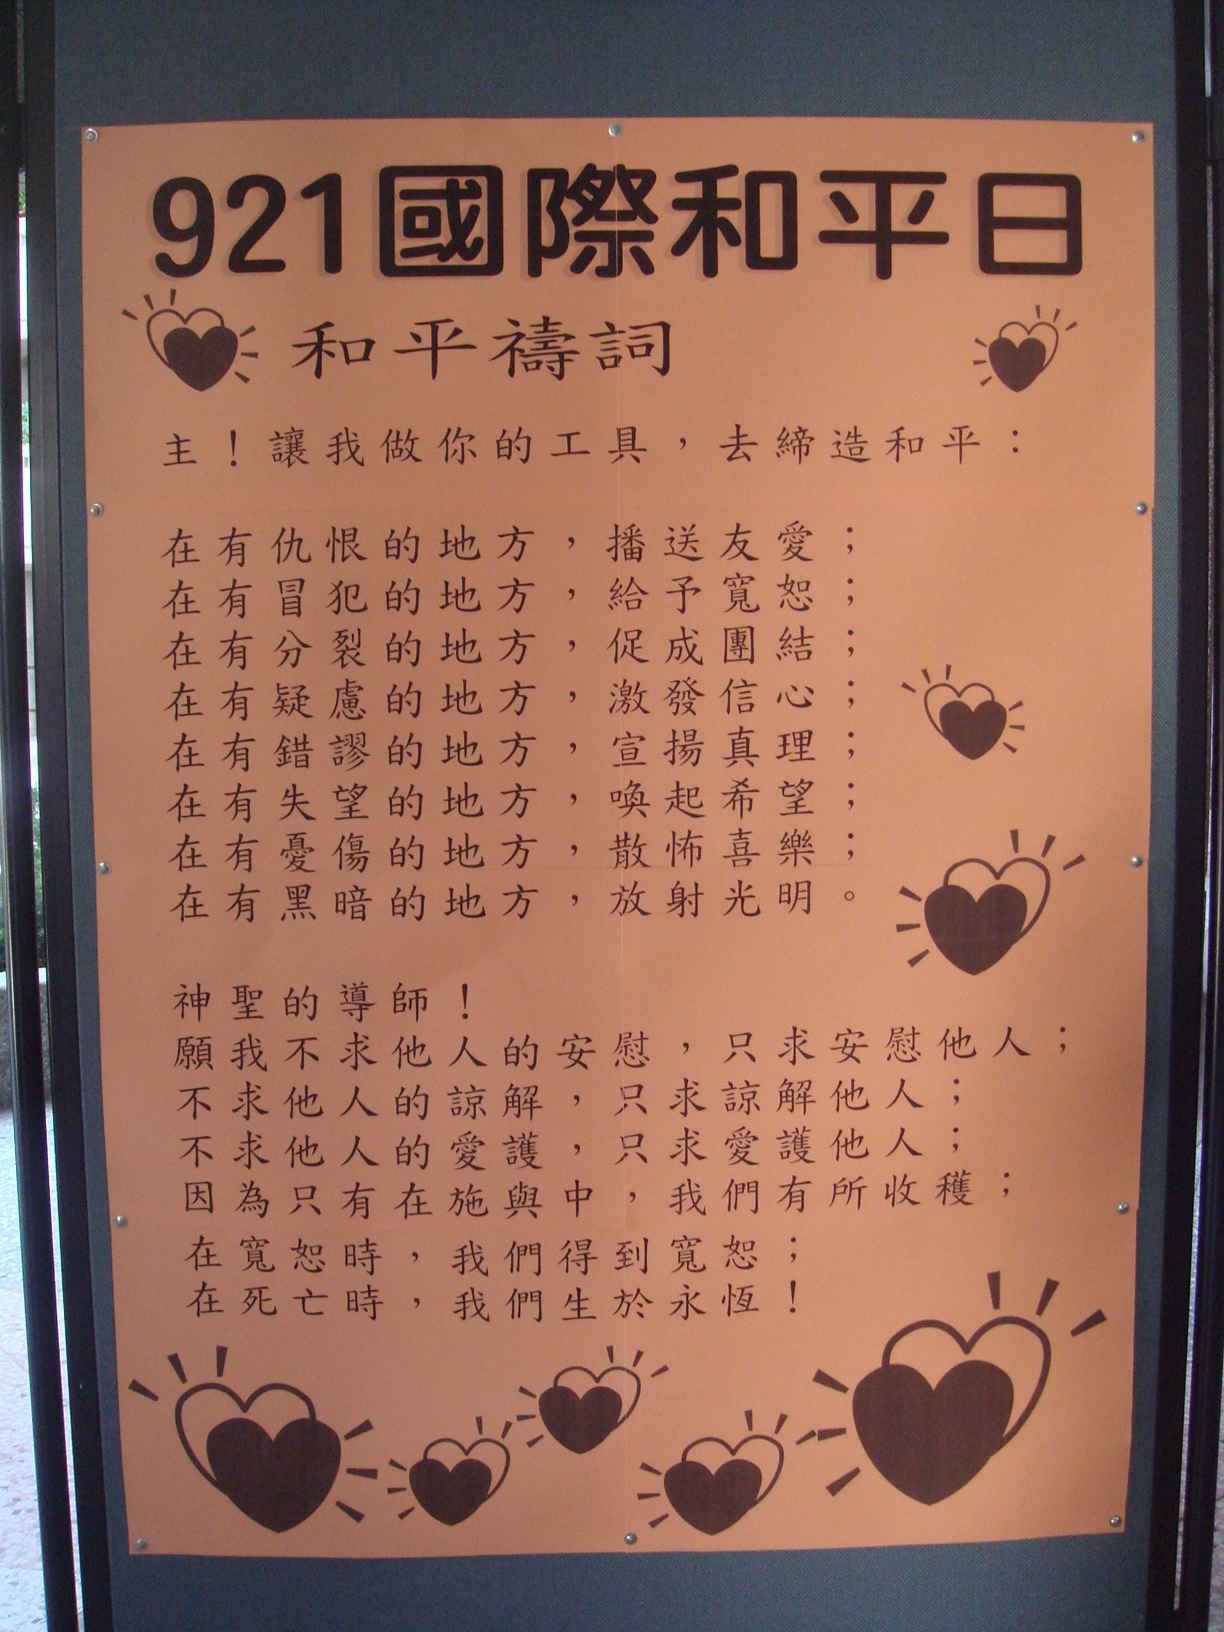 921國際和平日
和平禱詞
主！讓我做你的工具，去締造和平：
在有仇恨的地方，播送友愛；
在有冒犯的地方，給予寬恕；
在有分裂的地方，促成團結；
在有疑慮的地方，激發信心；
在有錯謬的地方，宣揚真理；
在有失望的地方，喚起希望；
在有憂傷的地方，散怖喜樂；
在有黑暗的地方，放射光明。
神聖的導師！
願我不求他人的安慰，只求安慰他人；
不求他人的諒解，只求諒解他人；
不求他人的愛護，只求愛護他人；
因為只有在施與中，我們有所收穫；
在寬恕時，我們得到寬恕；
在死亡時，我們生於永恆！